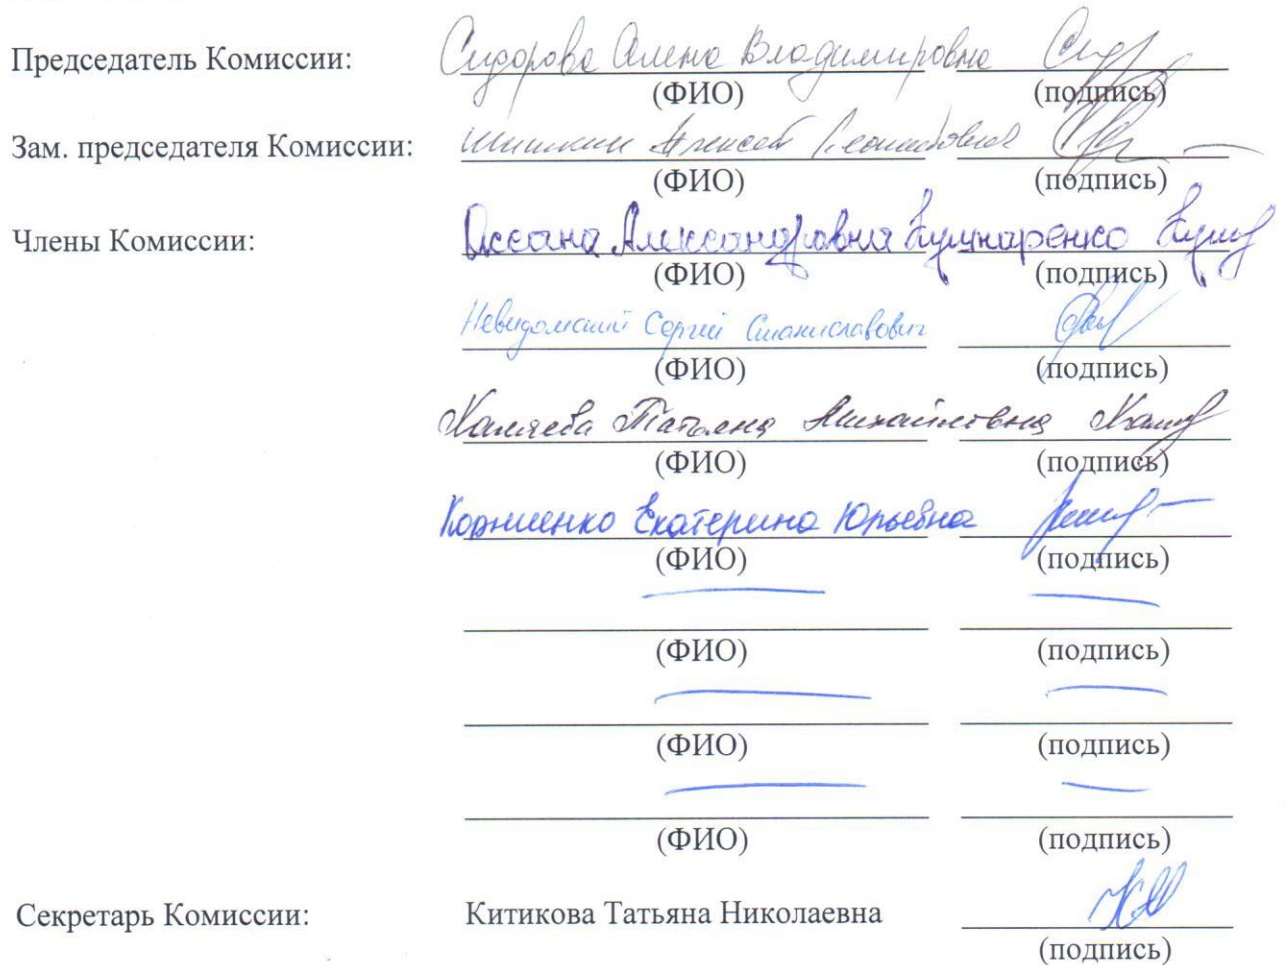 Председатель Комиссии: Сидорова Алена Владимировна Сид
(ФИО) (подпись)
Зам. председателя Комиссии: Шишкин Алексей Леонидович
(ФИО) (подпись)
Члены Комиссии: Оксана Александровна Кушнаренко Куш
(ФИО) (подпись)
Невидомский Сергей Станиславович
(ФИО) (подпись)
Татьяна Михайловна
(ФИО) (подпись)
Корниенко Екатерина Юрьевна
(ФИО) (подпись)
(ФИО) (подпись)
(ФИО) (подпись)
(ФИО) (подпись)
Секретарь Комиссии: Китикова Татьяна Николаевна
(подпись)